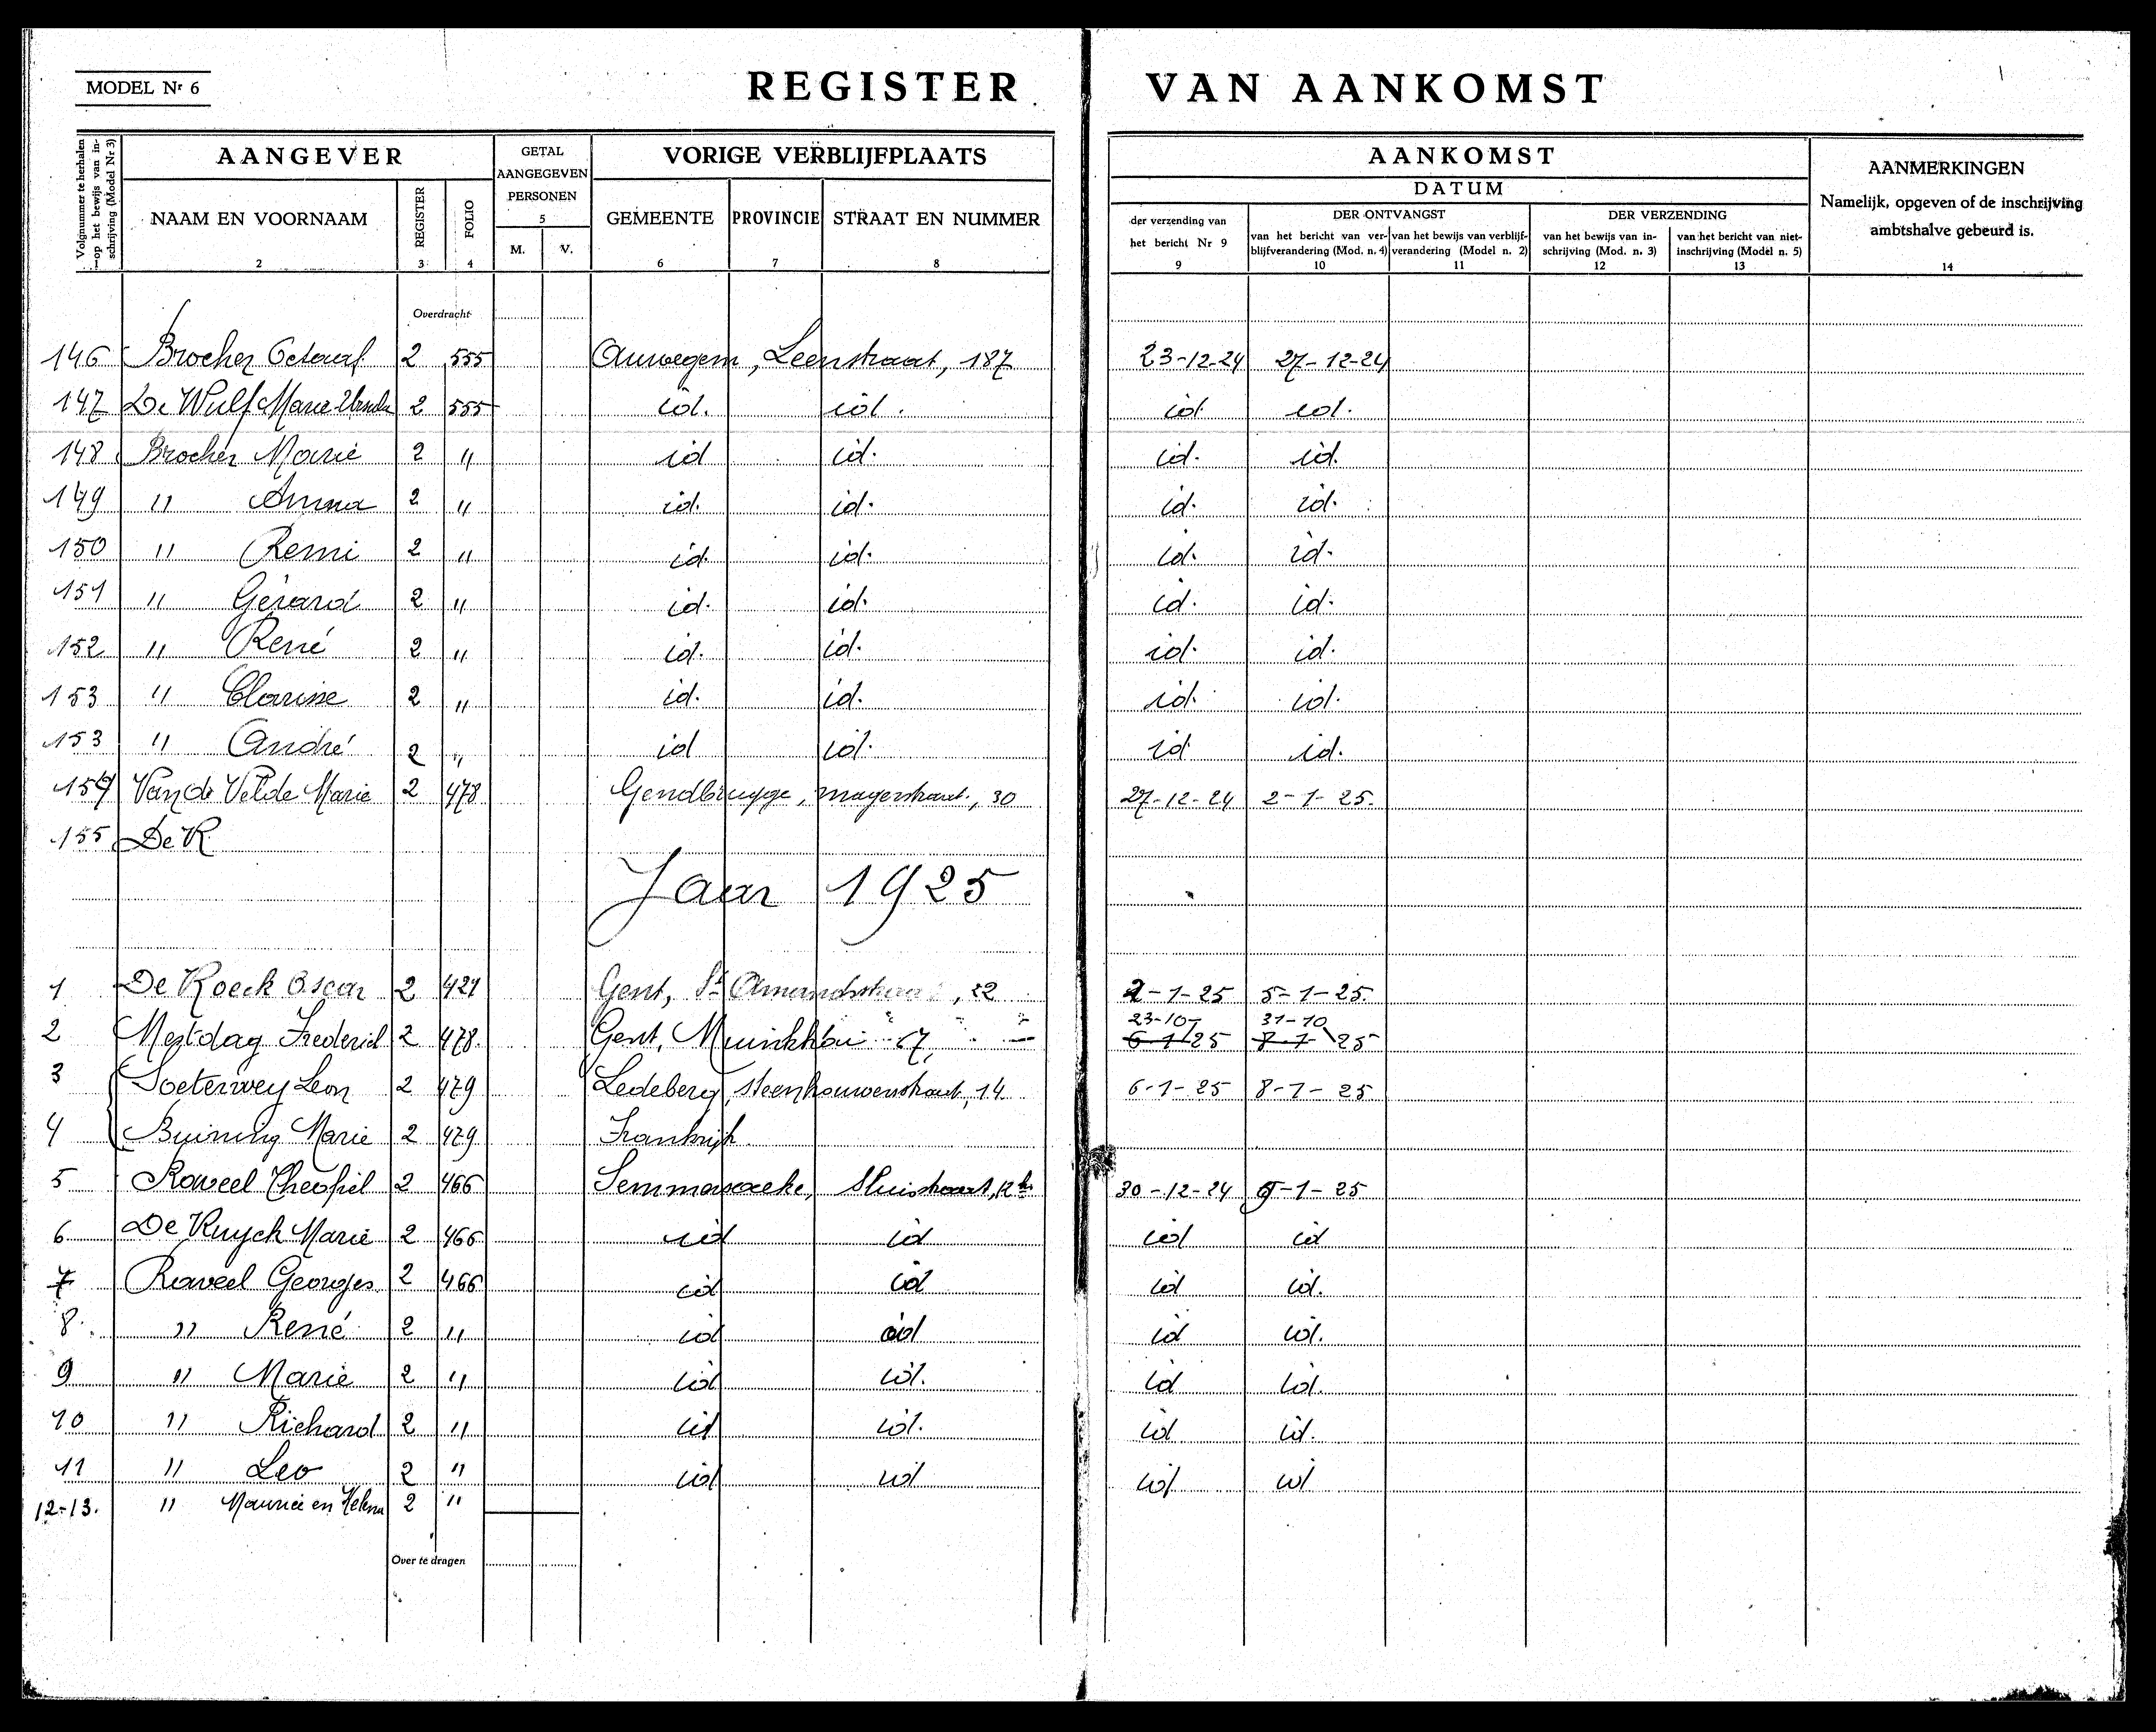 MODEL Nr 6
REGISTER VAN AANKOMST
Volgnummer te herhalen op het bewijs van inschrijving (Model Nr 3)
AANGEVER
GETAL AANGEGEVEN PERSONEN
VORIGE VERBLIJFPLAATS
AANKOMST
DATUM
AANMERKINGEN
Namelijk, opgeven of de inschrijving ambtshalve gebeurd is.
NAAM EN VOORNAAM REGISTER FOLIO 5 M. V. GEMEENTE PROVINCIE STRAAT EN NUMMER
der verzending van het bericht Nr 9
DER ONTVANGST
DER VERZENDING
van het bericht van verblijfverandering (Mod. n. 4) van het bewijs van verblijfverandering (Model n. 2) van het bewijs van inschrijving (Mod. n. 3) van het bericht van niet-inschrijving (Model n. 5)
1 2 3 4 6 7 8 9 10 11 12 13 14
Overdracht
146 Brocher Octaaf 2 555 Auwegem, Leenstraat, 187 23-12-24 27-12-24
147 De Wulf Marie 2 555 id. id. id. id.
148 Brocher Marie 2 " id id. id. id.
149 " Anna 2 " id. id. id. id.
150 " Remi 2 " id. id. id. id.
151 " Gérard 2 " id. id. id. id.
152 " René 2 " id. id. id. id.
153 " Clarisse 2 " id. id. id. id.
153 " André 2 " id id. id id.
154 Van de Velde Marie 2 478 Gendbrugge, 30 27-12-24 2-1-25.
155 De R
Jaar 1925
1 De Roeck Oscar 2 421 Gent, St Amandstraat, 22 2-1-25 5-1-25.
23-10- 31-10
2 Mestdag Frederik 2 478. Gent, Muinkkaai 67, 6-1-25 8-1-25
3 Soeterwey Leon 2 479 Ledeberg, Steenhouwerstraat, 14 6-1-25 8-1-25
4 Buining Marie 2 479 Frankrijk
5 Raveel Theofiel 2 466 Semmerzaeke, Sluisstraat, 12 30-12-24 9-1-25
6 De Ruyck Marie 2 466 id id id id
7 Raveel Georges 2 466 id id id id.
8. " René 2 " id id id id.
9 " Marie 2 " id id. id id.
10 " Richard 2 " id id. id id.
11 " Leo 2 " id id id id
12-13. " Maurice en Helena 2 "
Over te dragen